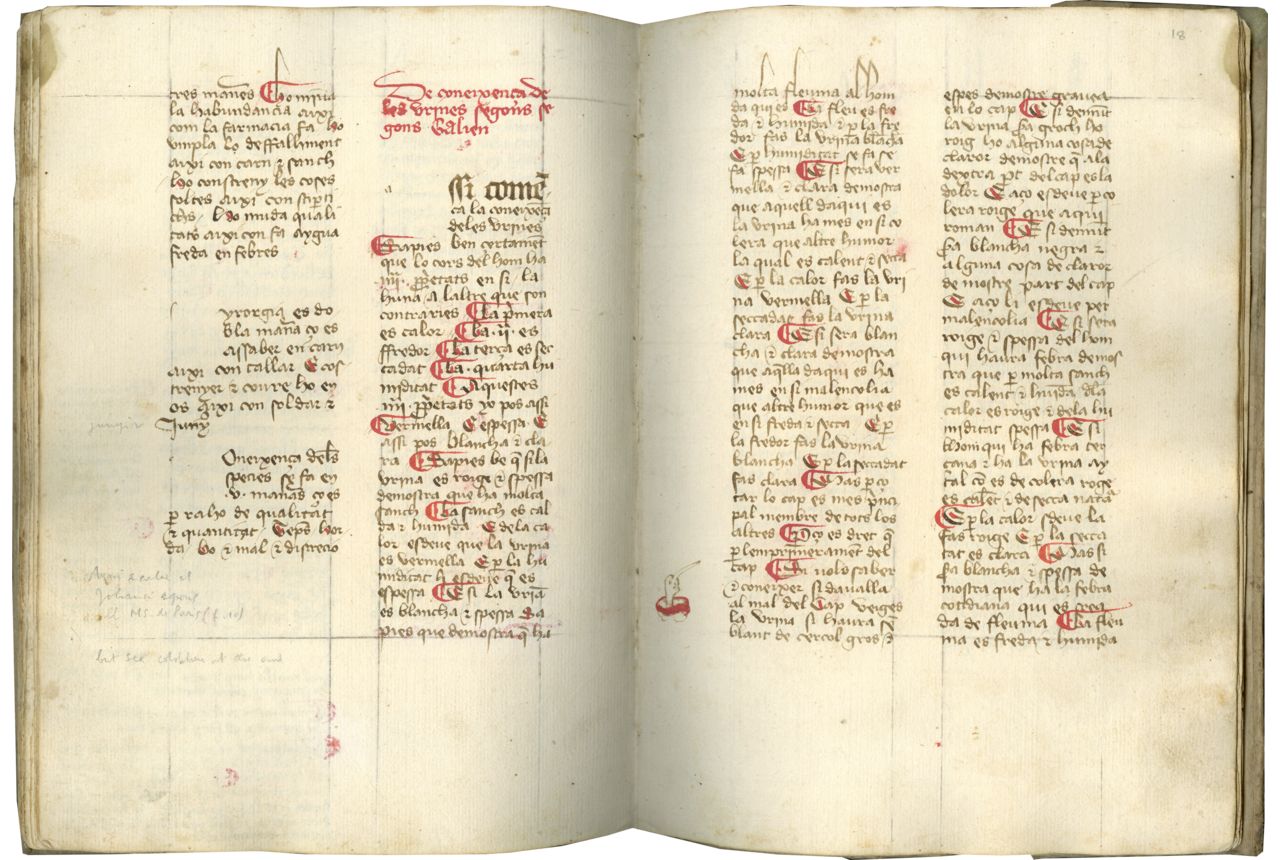 tres maneres ho minua
la habundancia axi
com la farmacia fa ho
umpla lo deffalliment
axi con carn ⁊ sanch
ho constreny les coses
soltes axi con stipti
chs ho muda quali
tats axi con fa aygua
freda en febres
yrorgia es do
bla maña ço es
assaber en carn
axi con tallar E cos
trenyer ⁊ coure ho en
os axi con soldar ⁊
Juny
Oneixença dels
species se fa en
.v. manãs ço es
per raho de qualitat
⁊ quantitat temps hor
da bo ⁊ mal ⁊ discrecio
De coneixença de
les vrines segons se
gons Galien
Assi comẽ
ça la coneixeça
deles vrines
Sapies ben certament
que lo cors del hom ha
.iiij. ꝓpietats en si la
huna a laltre que son
contraries La pͥmera
es calor La .ij. es
ffredor La terça es sec
cadat La quarta hu
miditat Aquestes
.iiij. ꝓpietats yo pos assi
Vermella E espessa E
assi pos blancha ⁊ cla
ra Sapies be q̃ si la
vrina es roige ⁊ spessa
demostra que ha molta
sanch La sanch es cal
da ⁊ humida E de la ca
lor esdeve que la vrina
es vermella E ꝑ la hu
miditat li esdeve q̃ es
espessa E si la vriã
es blancha ⁊ spessa sa
pies que demostra q̃ ha
18
molta fleuma al hom
da qui es La fleu es fre
da ⁊ humida ⁊ ꝑ la fre
dor fas la vrina blãcha
E ꝑ humiditat se fa se
fa spessa E si sera ver
mella ⁊ clara demostra
que aquell daqui es
la vrina ha mes en si co
lera que altre humor
la qual es calent ⁊ secca
E ꝑ la calor fas la vri
na vermella E ꝑ la
seccadat fas la vrina
clara E si sera blan
cha ⁊ clara demostra
que aq̃lla daqui es ha
mes en si malencolia
que altre humor que es
en si freda ⁊ secca E ꝑ
la fredor fas la vrina
blancha E ꝑ la seccadat
fas clara Mas ꝑ co
tar lo cap es mes ꝓnci
pal membre de tots los
altres ço es dret q̃
ꝑlem primerament del
cap Si vols saber
⁊ coneixer si davalla
al mal del Cap veiges
la vrina si haura
blanc de cercol gros o
espes demostre graveza
en lo cap E si demũt
la vrina fa groch ho
roig ho alguna cosa de
claror demostre q̃ a la
dextra pt del cap es la
dolor E aço esdeve ꝑ co
lera roige que aqui
roman E si demũt
fa blancha negra ⁊
alguna cosa de claror
demostre part del cap
E aço li esdeve per
malencolia E si sera
roige ⁊ spessa del hom
qui haura febra demos
tra que ꝑ molta sanch
es calent ⁊ humida dla
calor es roige ⁊ dela hu
miditat spessa E si
hom qui ha febra ter
çana ⁊ ha la vrina ay
tal cõ es de colera roge
es calẽt ⁊ de secca natã
E ꝑ la calor sdeve la
fas roige E ꝑ la secca
tat es clara Mas si
fa blancha ⁊ spessa de
mostra que ha la febra
cotidiana qui es crea
da de fleuma La fleu
ma es freda ⁊ humida